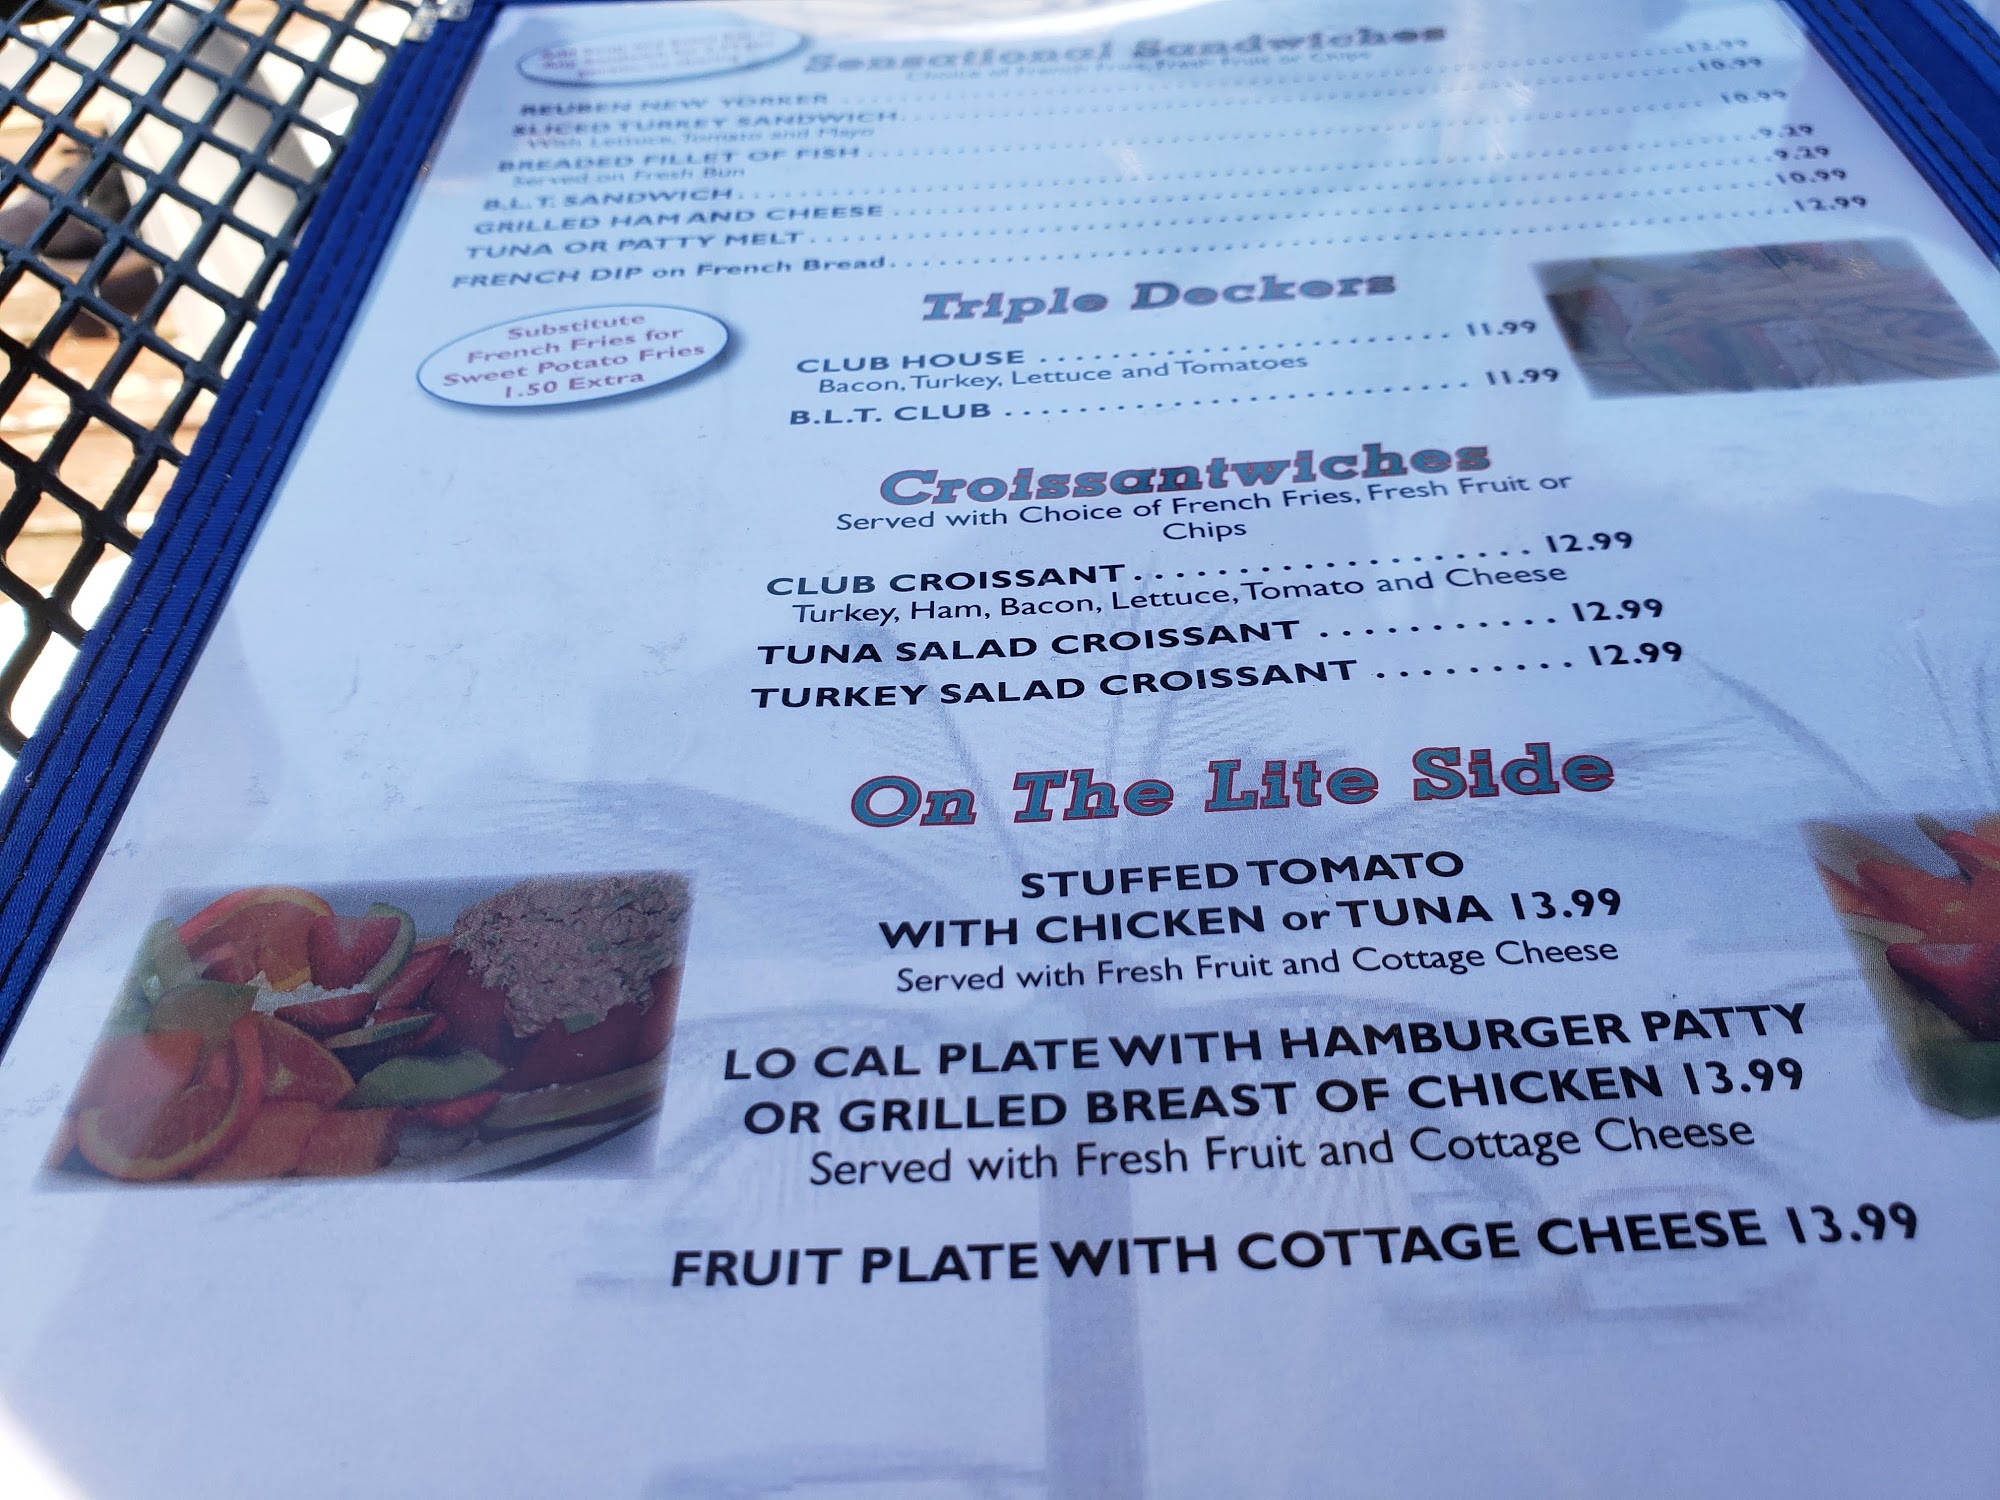 Sensational Sandwiches
Choice of French Fries, Fresh Fruit or Chips
REUBEN NEW YORKER 12.99
SLICED TURKEY SANDWICH 10.99
With Lettuce, Tomato and Mayo
BREADED FILLET OF FISH 10.99
Served on Fresh Bun
B.L.T. SANDWICH 9.29
GRILLED HAM AND CHEESE 9.29
TUNA OR PATTY MELT 10.99
FRENCH DIP on French Bread 12.99
Substitute
French Fries for
Sweet Potato Fries
1.50 Extra
Triple Deckers
CLUB HOUSE 11.99
Bacon, Turkey, Lettuce and Tomatoes
B.L.T. CLUB 11.99
Croissantwiches
Served with Choice of French Fries, Fresh Fruit or
Chips
CLUB CROISSANT 12.99
Turkey, Ham, Bacon, Lettuce, Tomato and Cheese
TUNA SALAD CROISSANT 12.99
TURKEY SALAD CROISSANT 12.99
On The Lite Side
STUFFED TOMATO
WITH CHICKEN or TUNA 13.99
Served with Fresh Fruit and Cottage Cheese
LO CAL PLATE WITH HAMBURGER PATTY
OR GRILLED BREAST OF CHICKEN 13.99
Served with Fresh Fruit and Cottage Cheese
FRUIT PLATE WITH COTTAGE CHEESE 13.99